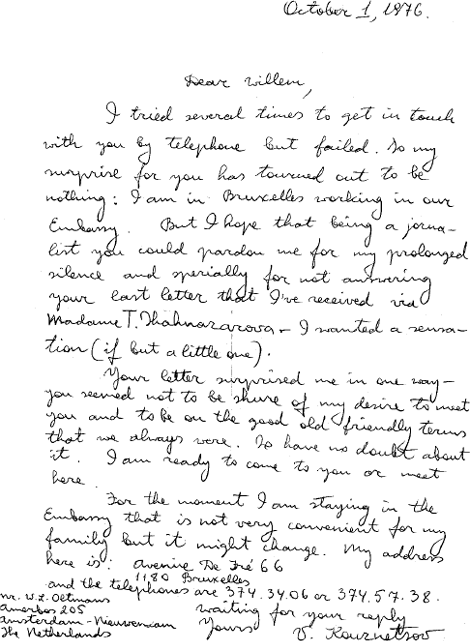 October 1, 1976.
Dear Willem,
I tried several times to get in touch
with you by telephone but failed. So my
surprise for you has tourned out to be
nothing: I am in Bruxelles working in our
Embassy. But I hope that being a jorna-
list you could pardon me for my prolonged
silence and specially for not answering
your last letter that I've received via
Madame T. - I wanted a sensa-
tion (if but a little one).
Your letter surprised me in one way-
you seemed not to be shure of my desire to meet
you and to be on the good old friendly terms
that we always were. So have no doubt about
it. I am ready to come to you or meet
here.
For the moment I am staying in the
Embassy that is not very convenient for my
family but it might change. My address
here is: avenue De Fré 66
1180 Bruxelles
and the telephones are 374.34.06 or 374.57.38.
Mr. W.L. Oltmans
Amerbos 205
Amsterdam-Nieuwendam
The Netherlands
waiting for your reply
Yours V. Kouznetsov